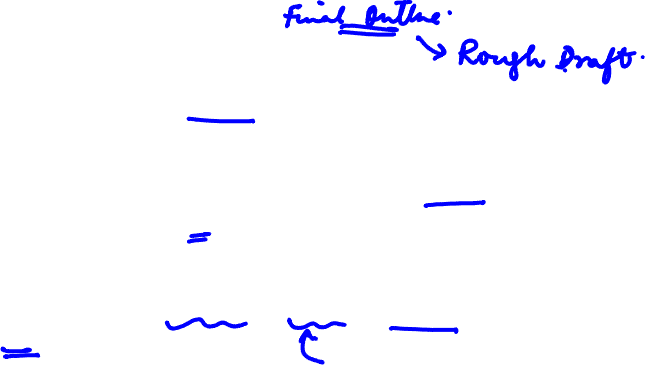 Final Outline.
Rough Draft.